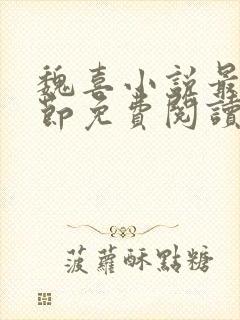 魏喜小説最
節免費閱讀
菠蘿酥點糖